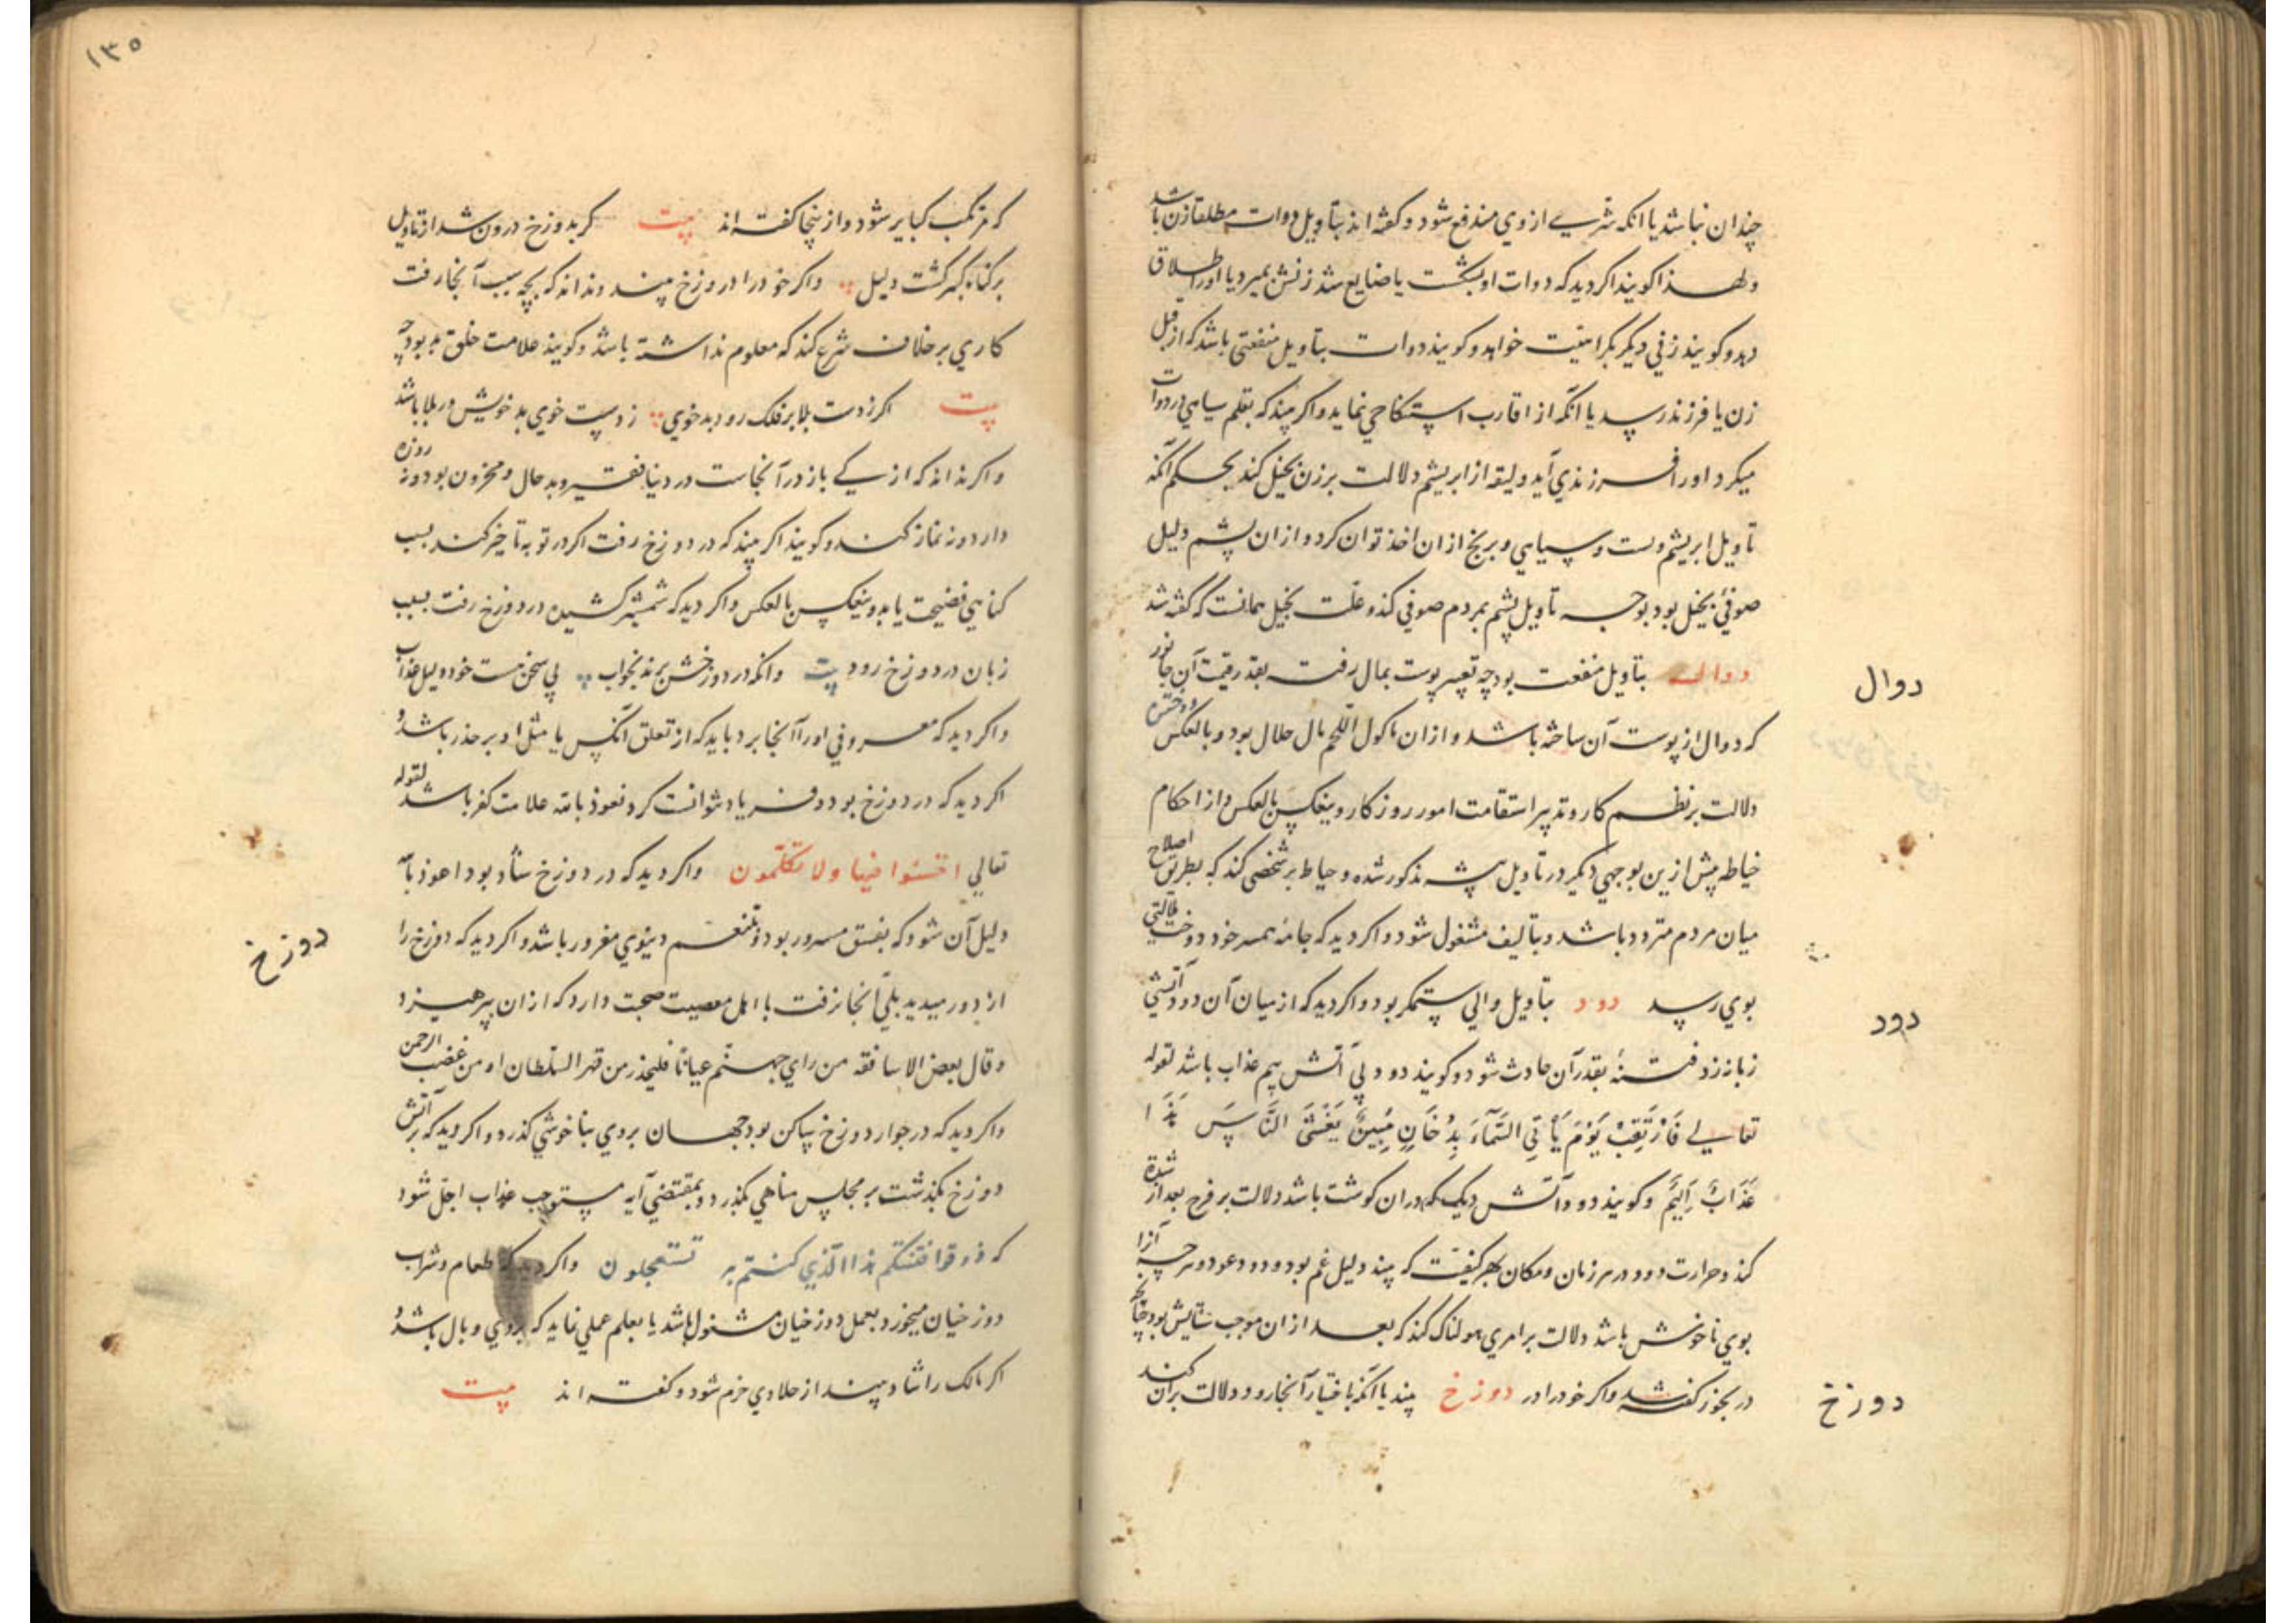 چندان نباشد یا انکه شری از وی مندفع شود و کفته اند بتاویل دوات مطلقا زن باشد
ولهذا کویند اکر دید که دوات او بشکست یا ضایع شد زنش بمیرد یا او را طلاق
دهد و کویند زنی دیکر بکراهیت خواهد و کویند دوات بتاویل منفعتی باشد که از قبل
زن یا فرزند رسد یا انکه از اقارب استنکاحی نماید و اکر بیند که بقلم سیاهی از دوات
میکرد او را فرزندی آید ولیقه از ابریشم دلالت بر زن بخیل کند بحکم آنکه
تاویل ابریشم و سیاهی و برنج ازان اخذ توان کرد و ازان پشم دلیل
صوفئ بخیل بود بوجه تاویل پشم بمردم صوفی کند و علت بخیل همانست که کفته شد
دوال بتاویل منفعت بود چه تعبیر پوست بمال رفت بقدر قیمت آن جانور
که دوال از پوست آن ساخته باشد و ازان ماکول اللحم مال حلال بود و بالعکس دوختن
دلالت بر نظم کار و تدبیر استقامت امور روزکار و بنعکس بالعکس و از احکام
خیاطه پیش ازین بوجهی دیکر در تاویل مذکور شده و خیاط بر شخصی کند که بطریق اصلاح
میان مردم متردد باشد و بتالیف مشغول شود و اکر دید که جامه همسر خود دوخت ملالتی
بوی رسد دود بتاویل والی ستمکر بود و اکر دید که از میان آن دود آتشی
زبانه زد فتنه بقدر آن حادث شود و کویند دود بی آتش بیم عذاب باشد لقوله
تعالی فَارْتَقِبْ يَوْمَ يَأْتِي السَّمَآءُ بِدُخَانٍ مُبِينٍ يَغْشَى النَّاسَ هَذَا
عَذَابٌ أَلِيمٌ و کویند دود و آتش دیک که دران کوشت باشد دلالت بر فرح بعد از شدة
کند و حرارت دود در هر زمان و مکان بهر کیفیت که بیند دلیل غم بود و دود عود و هرچه آنرا
بوی ناخوش باشد دلالت بر امری هولناک کند که بعد ازان موجب ستایش بود چنانکه
در بخور کفته شد و اکر خود را در دوزخ بیند یا انکه باختیار آنجا رود دلالت بران کند
دوال
دود
دوزخ
١٣٥
که مرتکب کبایر شود و ازینجا کفته اند بیت کر بدوزخ درون شد از تاویل
بر کناه کبر کشت دلیل و اکر خود را در دوزخ بیند و نداند که بچه سبب آنجا رفت
کاری بر خلاف شرع کند که معلوم نداشته باشد و کویند علامت خلق بد بود چه
بیت اکر ز دست بلا بر فلک رود بدخوی ز دست خوی بد خویش در بلا باشد
و اکر نداند که از کی باز در آنجاست در دنیا فقیر و بد حال و محزون بود و نه روزه
دارد و نه نماز کند و کویند اکر بیند که در دوزخ رفت اکر در توبه تاخیر کند بسبب
کناهی فضیحت یابد و بنعکس بالعکس و اکر دید که شمشیر کشیده در دوزخ رفت بسبب
زبان در دوزخ رود بیت وانکه در دوزخش برند بخواب بی سخن هست خود دلیل عذاب
و اکر دید که معروفی او را آنجا برد باید که از تعلق آنکس یا مثل او بر حذر باشد و
اکر دید که در دوزخ بود و فریاد نتوانست کرد نعوذ بالله علامت کفر باشد لقوله
تعالی اخسئوا فیها ولا تکلمون و اکر دید که در دوزخ شاد بود اعوذ بالله
دلیل آن شود که بفسق مسرور بود و بتنعم دنیوی مغرور باشد و اکر دید که دوزخ را
از دور میدید بلی آنجا نرفت با اهل معصیت صحبت دارد که ازان پرهیزد
وقال بعض الاساقفه من رای جهنم عیانا فلیحذر من قهر السلطان او من غضب الرحمن
و اکر دید که در جوار دوزخ ساکن بود جهان بر وی بناخوشی کذرد و اکر دید که بر آتش
دوزخ بکذشت بر مجلس مناهی بکذرد و بمقتضی آیه مستوجب عذاب اجل شود
که ذوقوا فتنتکم هذا الذی کنتم به تستعجلون و اکر دید که طعام و شراب
دوزخیان میخورد بعمل دوزخیان مشغول باشد یا بعلم عملی نماید که بر وی وبال باشد و
اکر مالک را شاد بیند از جلادی خرم شود و کفته اند بیت
دوزخ